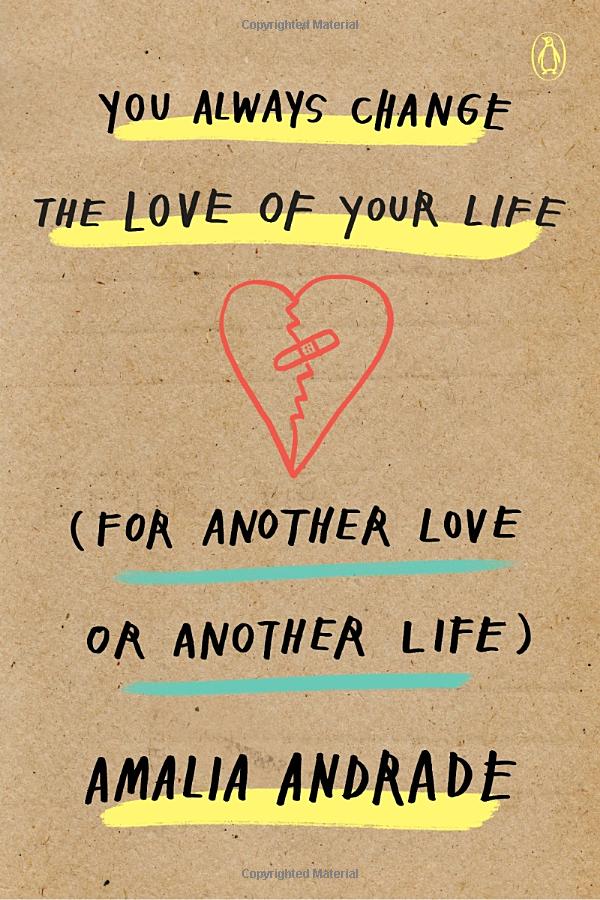 Copyrighted Material
YOU ALWAYS CHANGE
THE LOVE OF YOUR LIFE
(FOR ANOTHER LOVE
OR ANOTHER LIFE)
AMALIA ANDRADE
Copyrighted Material